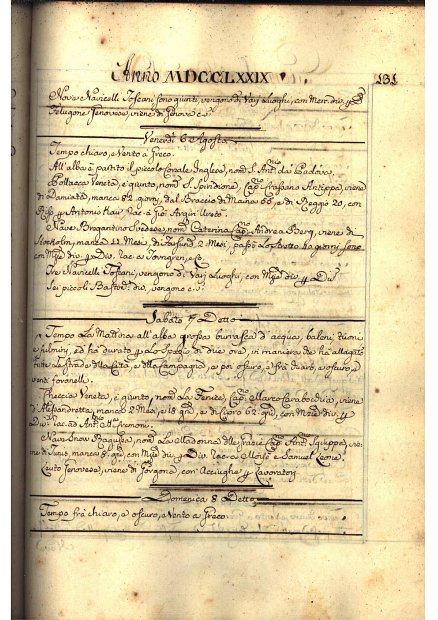 Anno MDCCLXXIX
131
Nove Navicelli Toscani sono giunti, vengono di Varj Luoghi, con Merc. div. p D
Felugone Genovese, viene di Genova
Venerdi 6 Agosto
Tempo chiaro, e Vento a Greco.
All'alba è partito il piccolo Corale Inglese, nom. S. Ant. da Padova.
Pollacca Veneta, è giunto, nom. S. Spiridione, Cap. Grassano Antippa, viene
di Damiata, manca 82 giorni, dal Braccio di Maino 66, e di Reggio 20, con
Riso p Antonio
Nave Brigantino Svedese, nom. Caterina Cap. Andrea Berg, viene di
Stockolm, manca 11 Mesi, di 2 Mesi, passò Lo Stretto 40 giorni sono
con M. div. p Div. Rac. a
Tre Navicelli Toscani, vengono di Varj Luoghi, con M. div. p Div.
Sei piccoli Bast. div. vengono
Sabato 7 Detto
Tempo La Mattina all'alba grossa burrasca d'acqua, baleni, tuoni
e fulmini, ed ha durato p Lo Spazio di due ore, in maniera che ha allagato
tutte Le Strade della Città, e della Campagna, e poi oscuro, e frà chiaro, e oscuro, e
venti
Checcia Veneta, è giunto, nom. La Fenice, Cap. Marco viene
d'Alessandretta, manca 2 Mesi, e 18 gni, e di Cipro 62 gni, con Merc. div. p
Div. Rac. ad Ant.
Nave Snow Raguseo, nom. La Madonna delle Grazie Cap. Ant. viene
di Tunis, manca 8 gni, con M. div. p Div. Rac. a Moisè e Samuel Leone.
Leuto Genovese, viene di Gorgona, con Acciughe p Lavoratori
Domenica 8 Detto
Tempo frà chiaro, e oscuro, e Vento a Greco